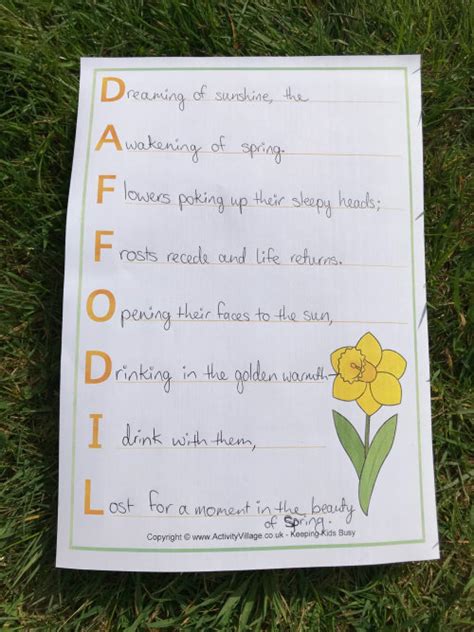 Dreaming of sunshine, the
Awakening of spring.
Flowers poking up their sleepy heads;
Frosts recede and life returns.
Opening their faces to the sun,
Drinking in the golden warmth-
I drink with them,
Lost for a moment in the beauty
of spring.
Copyright © www.ActivityVillage.co.uk - Keeping Kids Busy